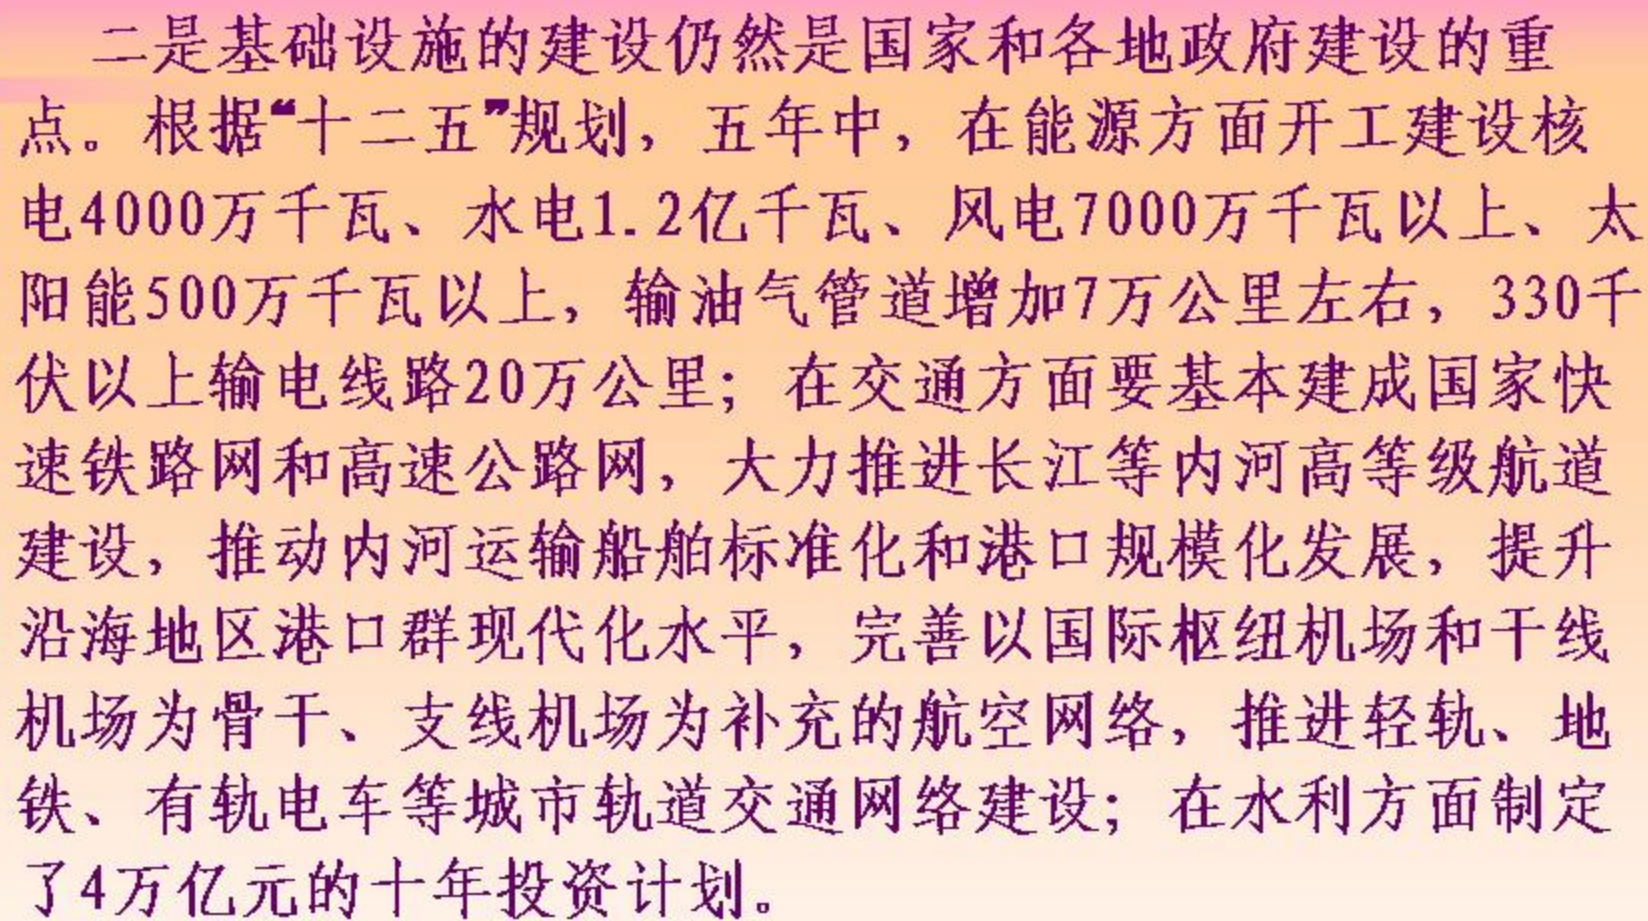 二是基础设施的建设仍然是国家和各地政府建设的重
点。根据“十二五”规划，五年中，在能源方面开工建设核
电4000万千瓦、水电1.2亿千瓦、风电7000万千瓦以上、太
阳能500万千瓦以上，输油气管道增加7万公里左右，330千
伏以上输电线路20万公里；在交通方面要基本建成国家快
速铁路网和高速公路网，大力推进长江等内河高等级航道
建设，推动内河运输船舶标准化和港口规模化发展，提升
沿海地区港口群现代化水平，完善以国际枢纽机场和干线
机场为骨干、支线机场为补充的航空网络，推进轻轨、地
铁、有轨电车等城市轨道交通网络建设；在水利方面制定
了4万亿元的十年投资计划。